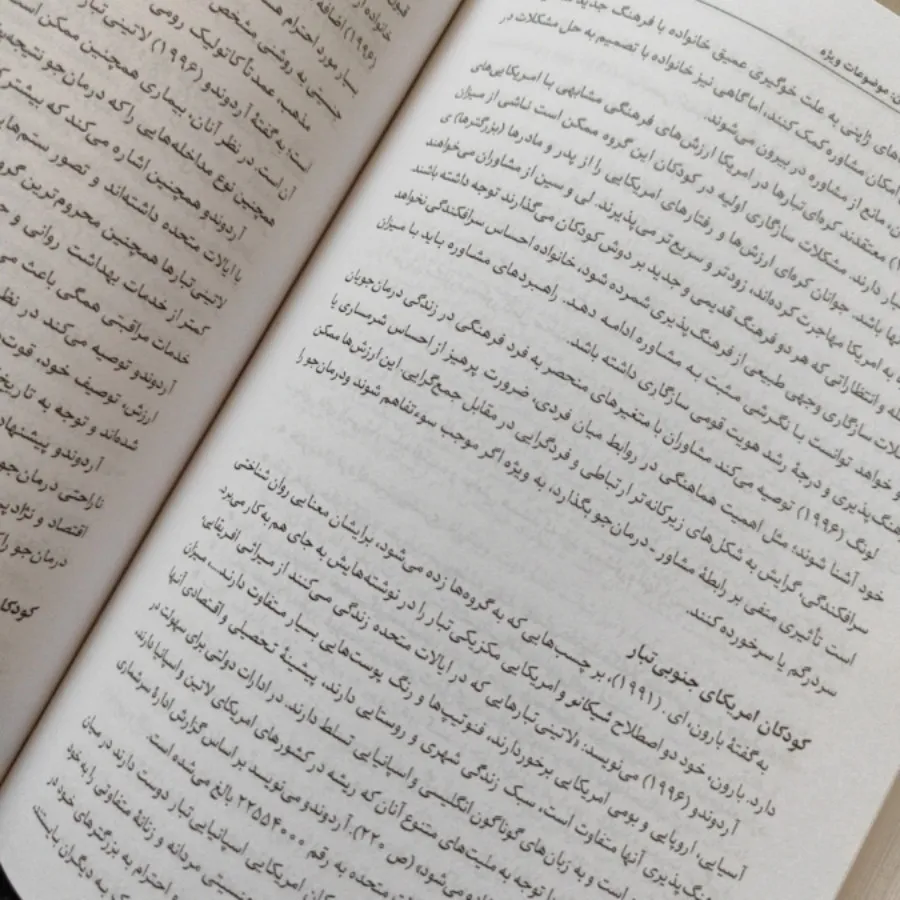 ن: موضوعات ویژه
های ژاپنی به علت خوگیری عمیق خانواده با فرهنگ جدید
امکان مشاوره کمک کنند، اما گاهی نیز خانواده با تصمیم به حل مشکلات در
ن، مانع از مشاوره در بیرون می‌شوند.
) معتقدند کره‌ای تبارها در امریکا ارزش‌های فرهنگی مشابهی با امریکایی‌های
تبار دارند. مشکلات سازگاری اولیه در کودکان این گروه ممکن است ناشی از میزان
نها باشد. جوانان کره‌ای ارزش‌ها و رفتارهای امریکایی را از پدر و مادرها (بزرگترها) ی
ه به امریکا مهاجرت کرده‌اند، زودتر و سریع‌تر می‌پذیرند. لی و سین از مشاوران می‌خواهند
له و انتظاراتی که هر دو فرهنگ قدیمی و جدید بر دوش کودکان می‌گذارند توجه داشته باشند
لات سازگاری وجهی طبیعی از فرهنگ‌پذیری شمرده شود، خانواده احساس سرافکندگی نخواهد
و خواهد توانست با نگرشی مثبت به مشاوره ادامه دهد. راهبردهای مشاوره باید با میزان
هنگ‌پذیری و درجهٔ رشد هویت قومی سازگاری داشته باشد.
لونگ (۱۹۹۶) توصیه می‌کند مشاوران با متغیرهای منحصر به فرد فرهنگی در زندگی درمان‌جویان
خود آشنا شوند؛ مثل اهمیت هماهنگی در روابط میان فردی، ضرورت پرهیز از احساس شرمساری یا
سرافکندگی، گرایش به شکل‌های زیرکانه‌تر ارتباطی و فردگرایی در مقابل جمع‌گرایی. این ارزش‌ها ممکن
است تأثیری منفی بر رابطهٔ مشاور - درمان‌جو بگذارد، به ویژه اگر موجب سوءتفاهم شوند و درمان‌جو را
سردرگم یا سرخورده کنند.
کودکان امریکای جنوبی تبار
به گفتهٔ بارون، ای. (۱۹۹۱)، بر چسب‌هایی که به گروه‌ها زده می‌شود، برایشان معنایی روان شناختی
دارد. بارون، خود دو اصطلاح شیکانو و امریکایی مکزیکی تبار را در نوشته‌هایش به جای هم به کار می‌برد.
آردوندو (۱۹۹۶) می‌نویسد: «لاتینی تبارهایی که در ایالات متحده زندگی می‌کنند از میراثی آفریقایی،
آسیایی، اروپایی و بومی آمریکایی برخوردارند، فنوتیپ‌ها و رنگ پوست‌هایی بسیار متفاوت دارند... میزان
نگ‌پذیری آنها متفاوت است، سبک زندگی شهری و روستایی دارند، پیشینهٔ تحصیلی و اقتصادی
است و به زبان‌های گوناگون انگلیسی و اسپانیایی تسلط دارند. در ادارات دولتی برای سهولت در
با توجه به ملیت‌های متنوع آنان که ریشه در کشورهای امریکای لاتین و اسپانیا دارند،
می‌شود» (ص ۲۲۰). آردوندو می‌نویسد بر اساس گزارش ادارهٔ سرشماری
متحده به رقم ۲۲۵۵۴۰۰۰ بالغ می‌شده است.
امریکایی اسپانیایی تبار دوست دارند در میان
جنسیتی مردانه و زنانهٔ متفاوتی را به خود
احترام به بزرگترهای خود در
به دیگران
خانواده
(۱۹۹۶) اضافه
بسیار مورد احترام
جنسیتی به روشنی مشخص
مذهب، عمدتاً کاتولیک رومی
است؛ به گفتهٔ آردوندو (۱۹۹۶) لاتینی تبار
آن است؛ در نظر آنان، بیماری همچنین ممکن
همچنین نوع مداخله‌هایی را که درمان‌جو نتیجه
آردوندو همچنین اشاره می‌کند که بیشتر
با ایالات متحده داشته‌اند و تصور ستم
لاتینی تبارها همچنین محروم‌ترین گرو
کمتر از خدمات بهداشت روانی و
خدمات مراقبتی همگی باعث می
آردوندو توصیه می‌کند در نظر
ارزش، توصیف خود، قوت
شده‌اند و توجه به تاریخ
آردوندو پیشنهاد
ناراحتی درمان‌جو
اقتصاد و نژاد
درمان‌جو را
کودکا